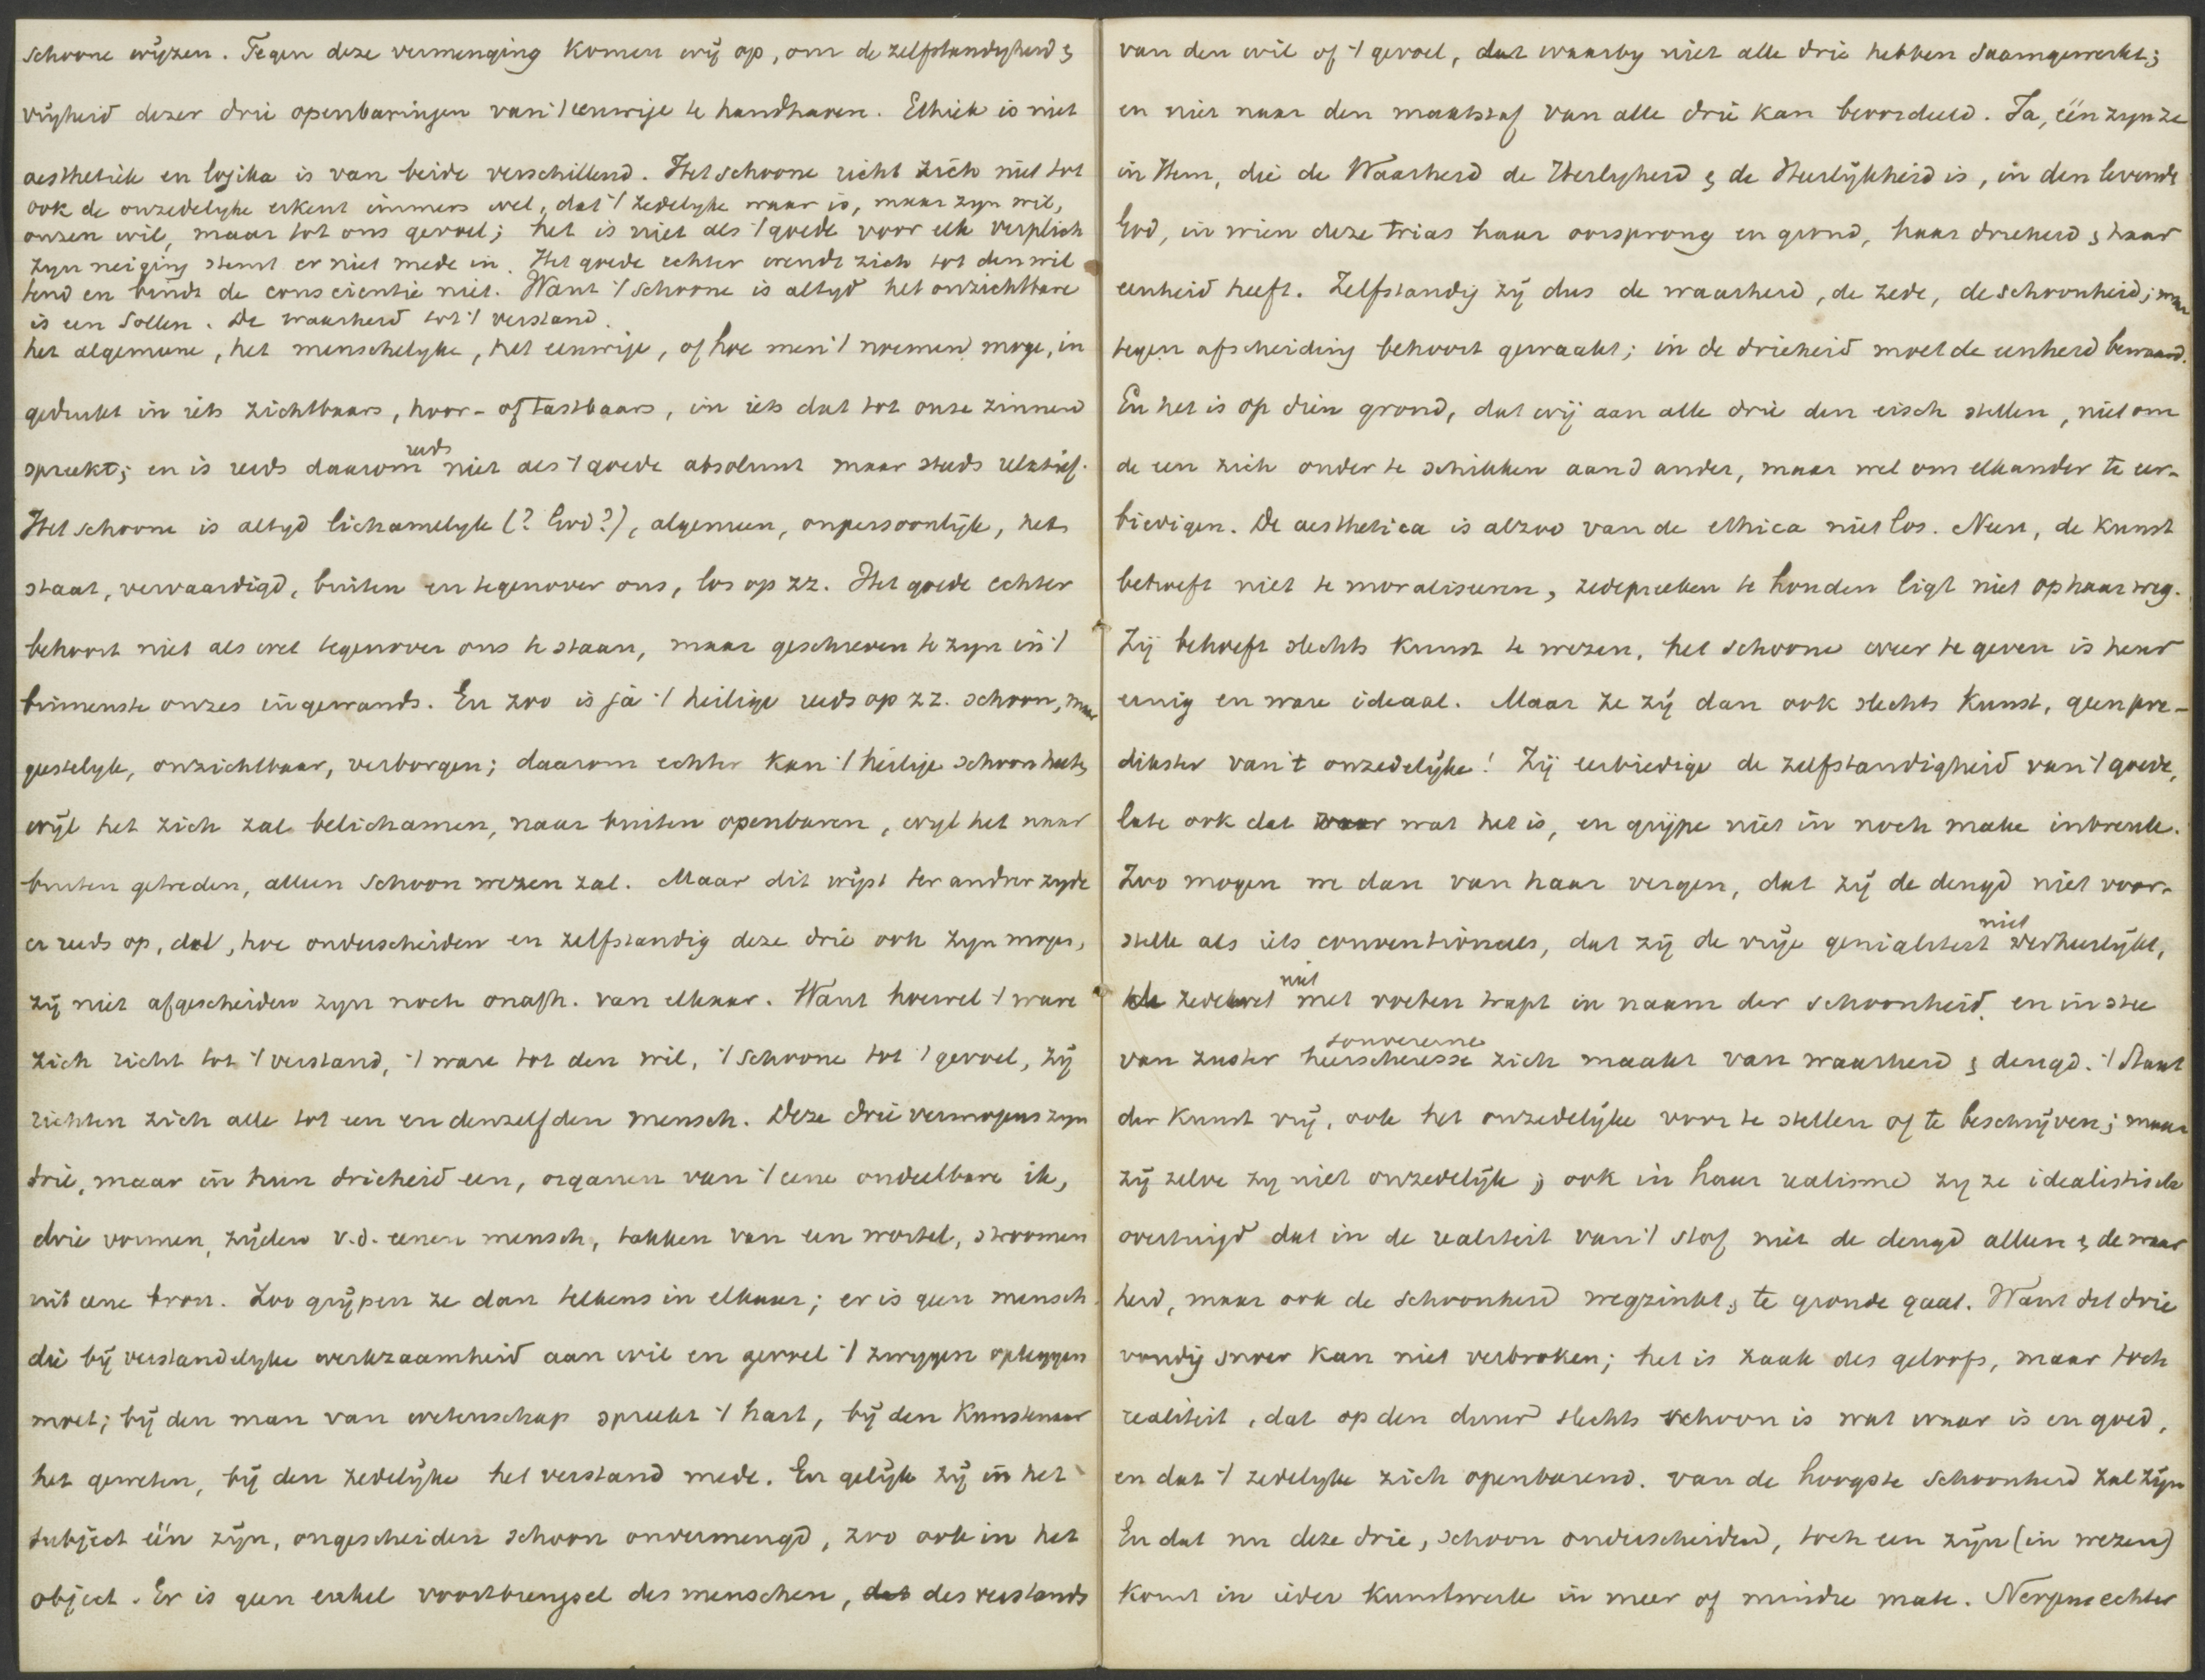 schoone wijzen. Tegen deze vermenging komen wij op, om de zelfstandigheid &
vrijheid dezer drie openbaringen van 't eeuwige te handhaven. Ethiek is niet
aesthetiek en logika is van beide verschillend. Het schoone richt zich niet tot
ook de onzedelyke erkent immers wel, dat 't zedelyke waar is, maar zyn wil,
onzen wil, maar tot ons gevoel; het is niet als 't goede voor elk verplich
zyn neiging stemt er niet mede in. Het goede echter wendt zich tot den wil
tend en bindt de conscientie niet. Want 't schoone is altyd het onzichtbare
is een Sollen. De waarheid tot 't verstand.
het algemeene, het menschelyke, het eeuwige, of hoe men 't noemen moge, in
gedrukt in iets zichtbaars, hoor- of tastbaars, in iets dat tot onze zinnen
spreekt; en is reeds daarom reeds niet als 't goede absoluut maar steeds relatief.
Het schoone is altyd lichamelyk (? God?), algemeen, onpersoonlijk, het
staat, vervaardigd, buiten en tegenover ons, los op zz. Het goede echter
behoort niet als wet tegenover ons te staan, maar geschreven te zyn in 't
binnenste onzes ingewands. En zoo is ja 't heilige reeds op zz. schoon, maar
geestelyk, onzichtbaar, verborgen; daarom echter kan 't heilige schoon heeten,
wijl het zich zal belichamen, naar buiten openbaren, wyl het naar
buiten getreden, alleen schoon wezen zal. Maar dit wijst ter andrer zyde
er reeds op, dat, hoe onderscheiden en zelfstandig deze drie ook zyn mogen,
zij niet afgescheiden zyn noch onafh. van elkaar. Want hoewel 't ware
zich richt tot 't verstand, 't ware tot den wil, 't schoone tot 't gevoel, zij
richten zich alle tot een en denzelfden mensch. Deze drie vermogens zyn
drie, maar in hun drieheid een, organen van 't eene ondeelbare ik,
drie vormen, zijden v.d. eenen mensch, takken van een wortel, stroomen
uit eene bron. Zoo grijpen ze dan telkens in elkaar; er is geen mensch
die bij verstandelyke werkzaamheid aan wil en gevoel 't zwygen opleggen
moet; bij den man van wetenschap spreekt 't hart, bij den Kunstenaar
het geweten, bij den zedelijke het verstand mede. En gelijk zij in het
subject één zijn, ongescheiden schoon onvermengd, zoo ook in het
object. Er is geen enkel voortbrengsel des menschen, dat des verstands
van den wil of 't gevoel, dat waarby niet alle drie hebben saamgewerkt;
en niet naar den maatstaf van alle drie kan beoordeeld. Ja, één zyn ze
in Hem, die de Waarheid de Heiligheid & de Heerlijkheid is, in den levende
God, in wien deze trias haar oorsprong en grond, haar drieheid & haar
eenheid heeft. Zelfstandig zij dus de waarheid, de zede, de schoonheid; maar
tegen afscheiding behoort gewaakt; in de drieheid moet de eenheid bewaard.
En het is op dien grond, dat wij aan alle drie den eisch stellen, niet om
de een zich onder te schikken aan d ander, maar wel om elkander te eer-
biedigen. De aesthetica is alzoo van de ethica niet los. Neen, de kunst
behoeft niet te moraliseeren, zedepreeken te houden ligt niet op haar weg.
Zij behoeft slechts kunst te wezen, het schoone weer te geven is haar
eenig en ware ideaal. Maar ze zij dan ook slechts Kunst, geen pre-
dikster van 't onzedelijke! Zij eerbiedige de zelfstandigheid van 't goede,
late ook dat waar wat het is, en grijpe niet in noch make inbreuk.
Zoo mogen we dan van haar vergen, dat zij de deugd niet voor-
stelle als iets conventioneels, dat zij de vrije genialiteit niet verheerlijkt,
de zedewet niet met voeten trapt in naam der schoonheid, en in stee
van zuster heerscheresse souvereine zich maakt van waarheid & deugd. 't Staat
der Kunst vrij, ook het onzedelijke voor te stellen of te beschrijven; maar
zij zelve zy niet onzedelijk; ook in haar realisme zy ze idealistisch
overtuigd dat in de realiteit van 't stof niet de deugd alleen & de waar
heid, maar ook de schoonheid wegzinkt & te gronde gaat. Want dat drie
voudig snoer kan niet verbroken; het is zaak des geloofs, maar toch
realiteit, dat op den duur slechts schoon is wat waar is en goed,
en dat 't zedelyke zich openbarend. van de hoogste schoonheid zal zijn
En dat nu deze drie, schoon onderscheiden, toch een zijn (in wezen)
komt in ieder kunstwerk in meer of mindre mate. Nergens echter